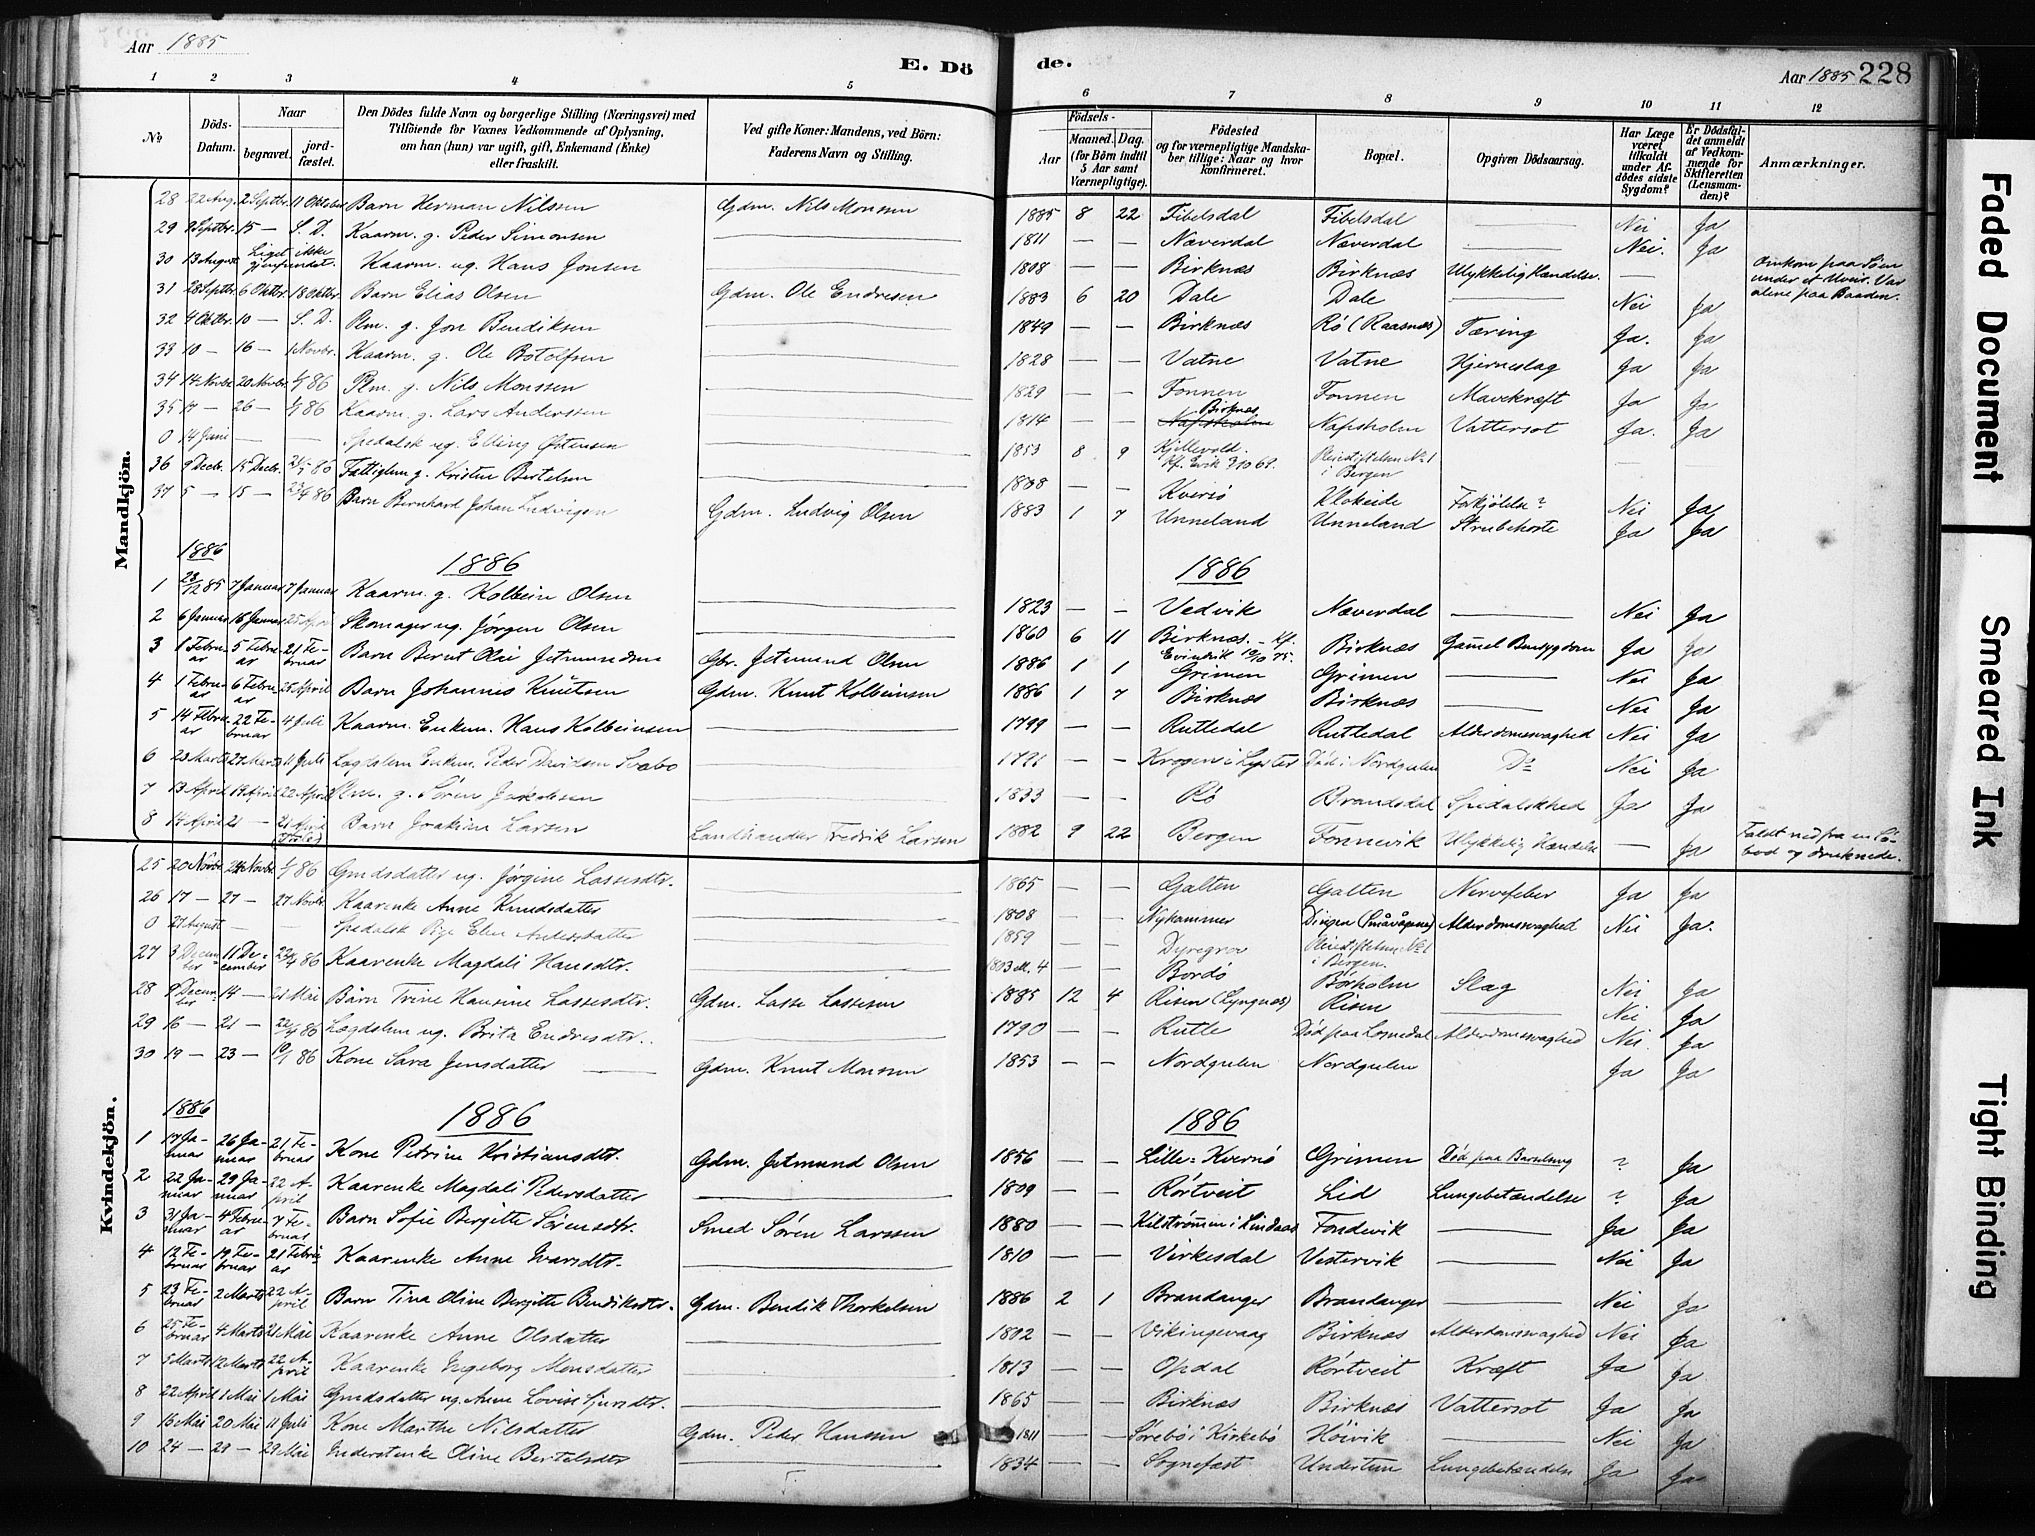 Aar 1885
E. Dö
de.
Aar 1885 228
1 2 3 4 5 6 7 8 9 10 11 12
No
Döds-Datum.
Naar
begravet.
jord-fæstet.
Den Dödes fulde Navn og borgerlige Stilling (Næringsvei) med
Tilföiende for Voxnes Vedkommende af Oplysning,
om han (hun) var ugift, gift, Enkemand (Enke)
eller fraskilt.
Ved gifte Koner: Mandens, ved Börn:
Faderens Navn og Stilling.
Födsels-
Aar
Maaned. Dag.
(for Börn indtil
5 Aar samt
Værnepligtige).
Födested
og for værnepligtige Mandska-
ber tillige: Naar og hvor
konfirmeret.
Bopæl.
Opgiven Dödsaarsag.
Har Læge
været
tilkaldt
under Af-
dödes sidste
Sygdom?
Er Dödsfal-
det anmeldt
af Vedkom-
mende for
Skifteretten
(Lensman-
den)?
Anmærkninger.
Mandkjön.
28 22 Aug. 2 Septbr. 11 Oktober Barn Herman Nilssen Gdm. Nils Monssen 1885 8 22 Fibelsdal Fibelsdal — Nei Ja
29 9 Septbr. 15 — S. D. Kaarm. g. Peder Simonsen — 1811 — — Næverdal Næverdal — Nei. Ja
30 13 August Liget ikke gjenfundet. Kaarm. ug. Hans Jonsen — 1808 — — Birknæs Birknæs Ulykkelig Hændelse. — Omkom paa Søen under et Uveir. Var alene paa Baaden.
31 28 Septbr 6 Oktbr. 18 Oktbr. Barn Elias Olsen Gdm. Ole Endresen 1883 6 20 Dale Dale — Nei Ja
32 4 Oktbr. 10 — S. D. Plm. g. Jon Bendiksen — 1849 — — Birknæs Rø (Raasnæs) Tæring Ja. Ja
33 10 — 16 — 1 Novbr. Kaarm. g. Ole Botolfsen — 1828 — — Vatne Vatne Hjerneslag Ja Ja
34 14 Novbr 20 Novbr. 86 Plm. g. Nils Monssen — 1829 — — Fonnen Fonnen Mavekræft Ja Ja
35 17 — 26 — 86 Kaarm. g. Lars Anderssen — 1814 — — Birknæs Napsholm Napsholm Vattersot Ja. Ja
0 14 Juni — — Spedalsk ug. Elling Østensen — 1853 8 9 Kjellevold. Kf. Evik 3/10 69. Pleiestiftelsen No 1 i Bergen
36 9 Decbr. 15 Decbr. Fattiglem g. Kristen Bertelsen — Kversø Klokeide Forkjølelse? Nei Ja
37 5 — 15 — 23/4 86 Barn Bernhard Johan Ludvigsen Gdm. Ludvig Olsen 1883 1 7 Unneland Unneland Strubehoste Ja Ja
1886 1886 1886
1 28/12 85 7 Januar 7 Januar Kaarm. g. Kolbein Olsen — 1823 — — Vedvik Næverdal — Nei Ja
2 6 Januar 16 Januar 25 April Skomager ug. Jørgen Olsen — 1860 6 11 Birknæs. — Kf. Evindvik 10/10 75. Birknæs Gamel Bensygdom Ja Ja
3 1 Februar 5 Februar 21 Februar Barn Bernt Olai Jetmundsen Gbr. Jetmund Olsen 1886 1 1 Grimen Grimen — Nei Ja
4 1 Februar 6 Februar 25 April Barn Johannes Knutsen Gdm. Knut Kolbeinsen 1886 1 7 Birknæs Birknæs — Nei Ja
5 14 Februar 22 Februar 4 Juli Kaarm. Enkem. Hans Kolbeinsen — 1799 — — Rutledal Rutledal Alderdomssvaghed Nei Ja
6 23 Marts 27 Marts 11 Juli Lægdslem Enkem. Peder Davidsen Svabo — — — Krogen i Lyster Død i Nordgulen Do Nei Ja
7 13 April 19 April 22 April Plm. g. Søren Jakobsen — 1833 — — Rø Brandsdal Spedalskhed Ja Ja
8 14 April 21 — 21 April Barn Joakim Larsen Landhandler Fredrik Larsen 1882 9 22 Bergen Fonnevik Ulykkelig Hændelse — Ja Faldt ned fra en Sø-bod og druknede.
Kvindekjön.
25 20 Novbr 24 Novbr. 86 Gmdsdatter ug. Jørgine Lassesdtr. — 1865 — — Galten Galten Nervefeber Ja Ja
26 17 — 27 — 27 Novbr. Kaarenke Anne Knudsdatter — 1808 — — Nyhammer Dingen (Småvågene) Alderdomssvaghed Nei Ja.
0 27 August — — Spedalsk Pige Elen Andersdatter — 1859 Dyregrov Pleiestiftelsen No 1 i Bergen.
27 3 December 11 December 86 Kaarenke Magdali Hansdtr. — — — Bordø Børholm Slag Nei Ja
28 9 December 14 — 21 Mai Barn Trine Hansine Lassesdtr. Gdm. Lasse Lassesen 1885 12 4 Risen (Lyngnæs) Risen — Nei Ja
29 16 — 21 — 86 Lægdslem ug. Brita Endresdtr. — 1790 — — Rutle Død paa Losnedal Alderdomssvaghed Nei. Ja
30 19 — 23 — 10/1 86 Kone Sara Jensdatter — Gdm. Knut Monssen 1853 — — Nordgulen Nordgulen Ja Ja
1886 1886 1886
1 17 Januar 26 Januar 21 Februar Kone Petrine Kristiansdtr. Gdm. Jetmund Olsen 1856 — — Lille-Kversø Grimen Død paa Barselseng ? Ja
2 22 Januar 29 Januar 22 April Kaarenke Magdali Pedersdatter — 1809 — — Rørtveit Lid Lungebetændelse ? Ja
3 31 Januar 4 Februar 7 Februar Barn Sofie Bergitte Sørensdtr. Smed Søren Larssen 1880 — — Kilstrømmen i Lindaas Fondevik — Ja Ja
4 12 Februar 19 Februar 21 Februar Kaarenke Anne Ivarsdtr. — 1810 — — Virkesdal Vestervik — Nei Ja
5 23 Februar 2 Marts 22 April Barn Tina Oline Bergitte Bendiksdtr. Gdm. Bendik Thorkelsen 1886 2 1 Brandanger Brandanger — Nei Ja
6 25 Februar 4 Marts 21 Mai Kaarenke Anne Olsdatter — 1802 — — Vikingevaag Birknæs Alderdomssvaghed Nei Ja
7 5 Marts 12 Marts 22 April Kaarenke Ingeborg Monsdatter — 1813 — — Opdal Rørtveit Kræft Ja Ja
8 22 April 1 Mai 1 Mai Gmdsdatter ug. Anne Lovise — 1865 — — Birknæs Birknæs Vattersot Ja Ja
9 16 Mai 20 Mai 11 Juli Kone Marthe Nilsdatter Gdm. Peder Hanssen 1811 — — Sørebø i Kirkebø Høivik — Nei Ja
10 24 — 29 — 29 Mai Inderstenke Oline Bertelsdtr — 1834 — — Sognefæst Undertun Lungebetændelse Ja Ja
Faded Document
Smeared Ink
Tight Binding